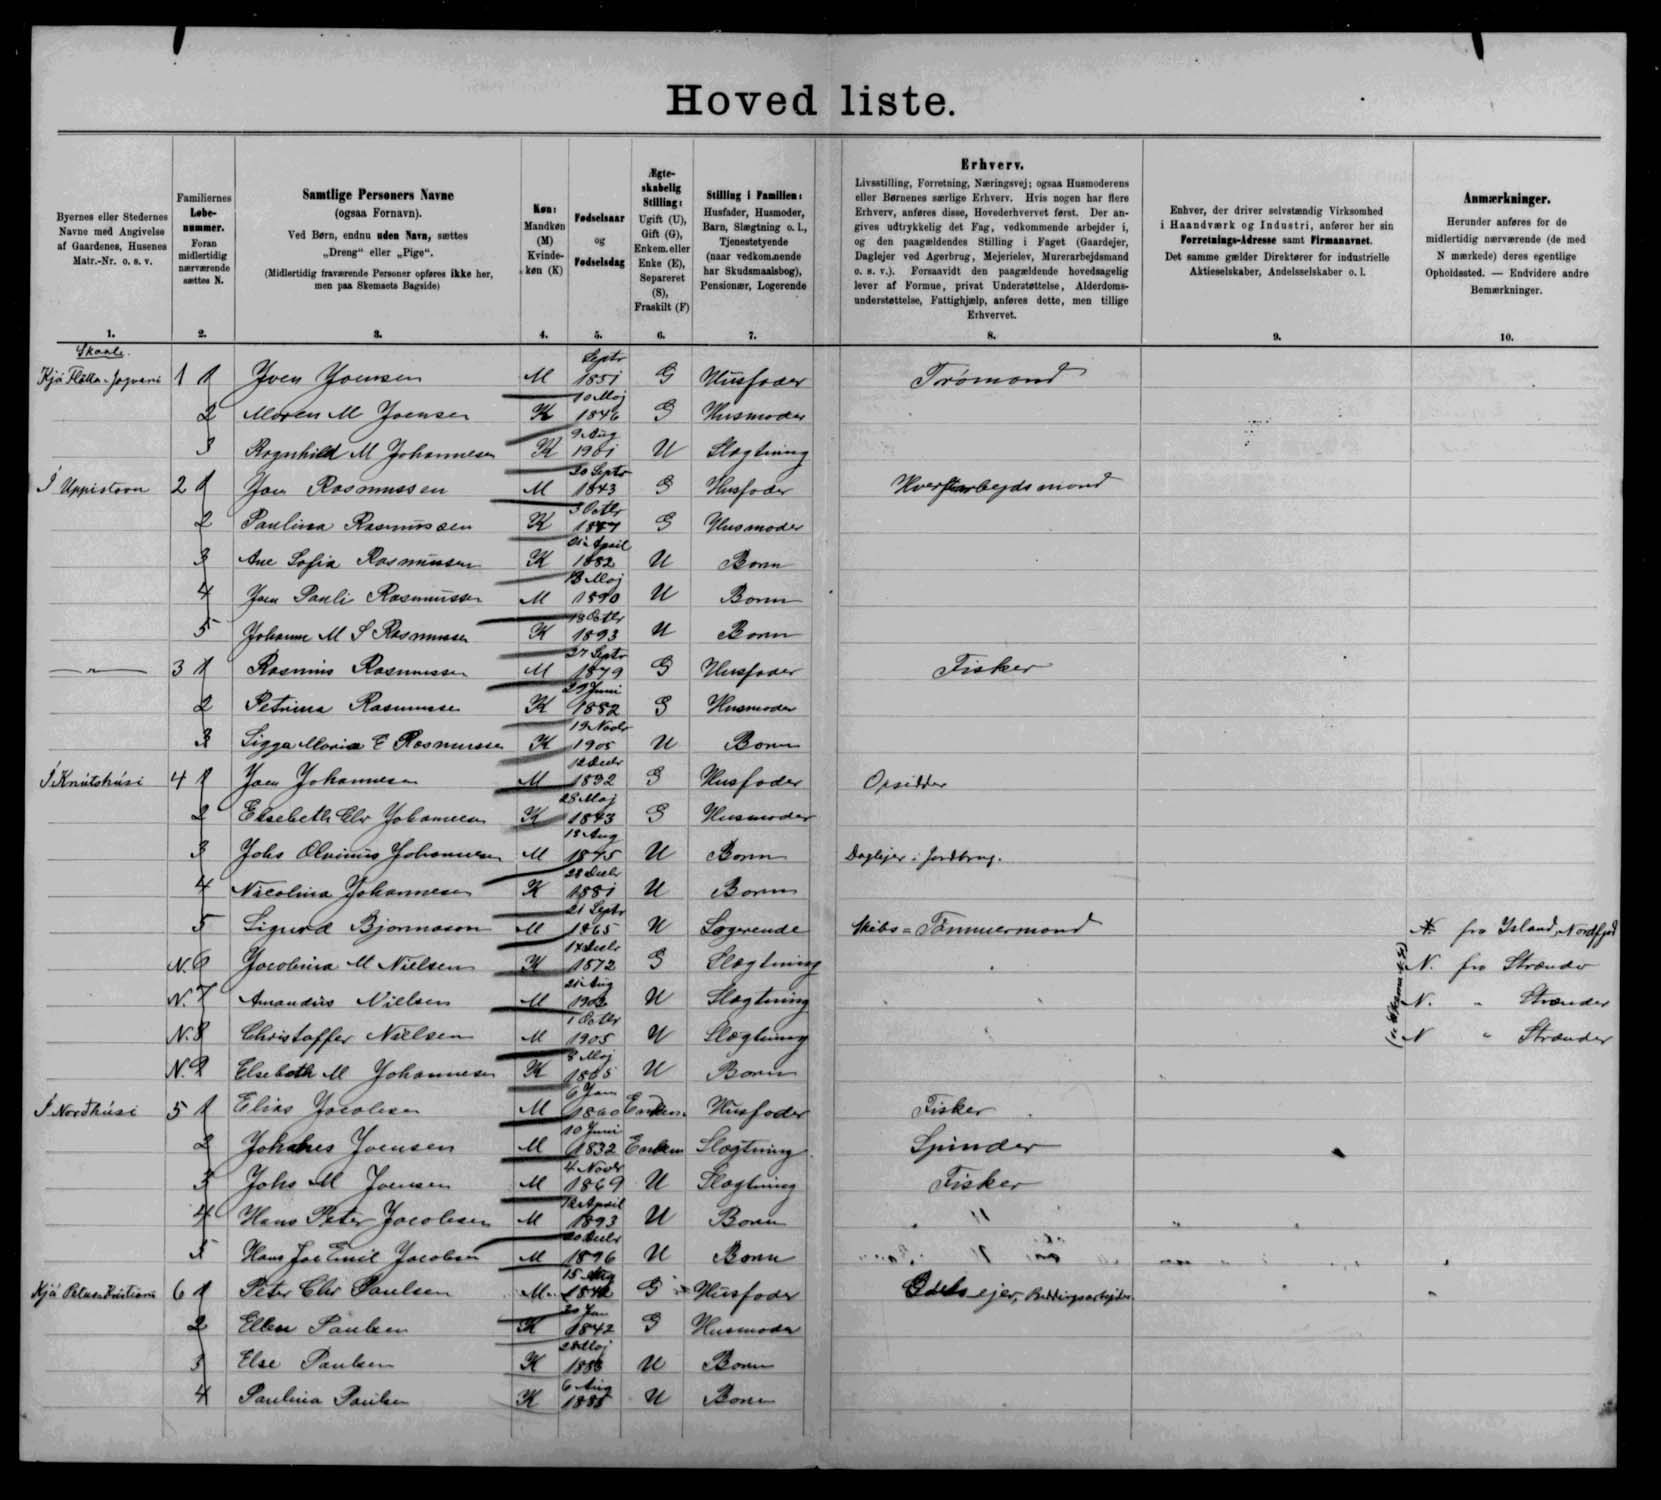 Hoved liste.
Byernes eller Stedernes Navne med Angivelse af Gaardenes, Husenes Matr.-Nr. o. s. v.
Familiernes Løbenummer. Foran midlertidig nærværende sættes N.
Samtlige Personers Navne (ogsaa Fornavn).
Ved Børn, endnu uden Navn, sættes „Dreng“ eller „Pige“.
(Midlertidig fraværende Personer opføres ikke her, men paa Skemaets Bagside)
Køn: Mandkøn (M) Kvindekøn (K)
Fødselsaar og Fødselsdag
Ægteskabelig Stilling: Ugift (U), Gift (G), Enkem. eller Enke (E), Separeret (S), Fraskilt (F)
Stilling i Familien: Husfader, Husmoder, Barn, Slægtning o. l., Tjenestetyende (naar vedkommende har Skudsmaalsbog), Pensionær, Logerende
Erhverv.
Livsstilling, Forretning, Næringsvej; ogsaa Husmoderens eller Børnenes særlige Erhverv. Hvis nogen har flere Erhverv, anføres disse, Hovederhvervet først. Der angives udtrykkelig det Fag, vedkommende arbejder i, og den paagældendes Stilling i Faget (Gaardejer, Daglejer ved Agerbrug, Mejerielev, Murerarbejdsmand o. s. v.). Forsaavidt den paagældende hovedsagelig lever af Formue, privat Understøttelse, Alderdomsunderstøttelse, Fattighjælp, anføres dette, men tillige Erhvervet.
Enhver, der driver selvstændig Virksomhed i Haandværk og Industri, anfører her sin Forretnings-Adresse samt Firmanavnet. Det samme gælder Direktører for industrielle Aktieselskaber, Andelsselskaber o. l.
Anmærkninger.
Herunder anføres for de midlertidig nærværende (de med N mærkede) deres egentlige Opholdssted. — Endvidere andre Bemærkninger.
1. 2. 3. 4. 5. 6. 7. 8. 9. 10.
Skaale.
1 1 Joen Joensen M Septr 1851 G Husfader
2 Maren M Joensen K 10 Maj 1846 G Husmoder
3 Ragnhild M Johannesen K 9 Aug 1901 U Slægtning
Í Uppistovu 2 1 Joen Rasmussen M 20 Septr 1843 G Husfader
2 Paulina Rasmussen K 3 Octbr 1847 G Husmoder
3 Ane Sofia Rasmussen K April 1882 U Barn
4 Joen Pauli Rasmussen M 13 Maj 1890 U Barn
5 Johanne M S Rasmussen K 18 Octbr 1893 U Barn
— " — 3 1 Rasmus Rasmussen M 27 Septr 1879 G Husfader Fisker
2 Petrina Rasmussen K 29 Juni 1882 G Husmoder
3 Sigga Maria E Rasmussen K 19 Novbr 1905 U Barn
Í Knútshúsi 4 1 Joen Johannesen M 12 Decbr 1832 G Husfader Opsidder
2 Elsebeth Elr Johannesen K 28 Maj 1843 G Husmoder
3 Johs Olvinius Johannesen M 18 Aug 1875 U Barn Daglejer i Jordbrug.
4 Nicolina Johannesen K 28 Decbr 1881 U Barn
5 Sigurd Bjornason M 21 Septr 1865 U Logerende Skibs=Tømmermand N. fra Island, Nordfjord
N. 6 Jacobina M Nielsen K 14 Decbr 1872 G Slægtning N. fra Strænder
N. 7 Amandus Nielsen M 21 Aug 1902 U Slægtning N. " Strænder
N. 8 Christoffer Nielsen M 1 Octbr 1905 U Slægtning N " Strænder
N. 9 Elsebeth M Johannesen K 8 Maj U Barn
Í Nordhúsi 5 1 Elias Jacobsen M 6 Jan 1860 Enkem. Husfader Fisker
2 Johannes Joensen M 10 Juni 1832 Enkem Slægtning Spinder
3 Johs M Joensen M 4 Novbr 1869 U Slægtning Fisker
4 Hans Peter Jacobsen M 12 April 1893 U Barn "
5 Hans Joe Emil Jacobsen M 20 Decbr 1896 U Barn "
6 1 Peter Chr Paulsen M 15 Aug G Husfader
2 Ellen Paulsen K 20 Jan 1842 G Husmoder
3 Else Paulsen K 28 Maj U Barn
4 Paulina Paulsen K 6 Aug 1885 U Barn